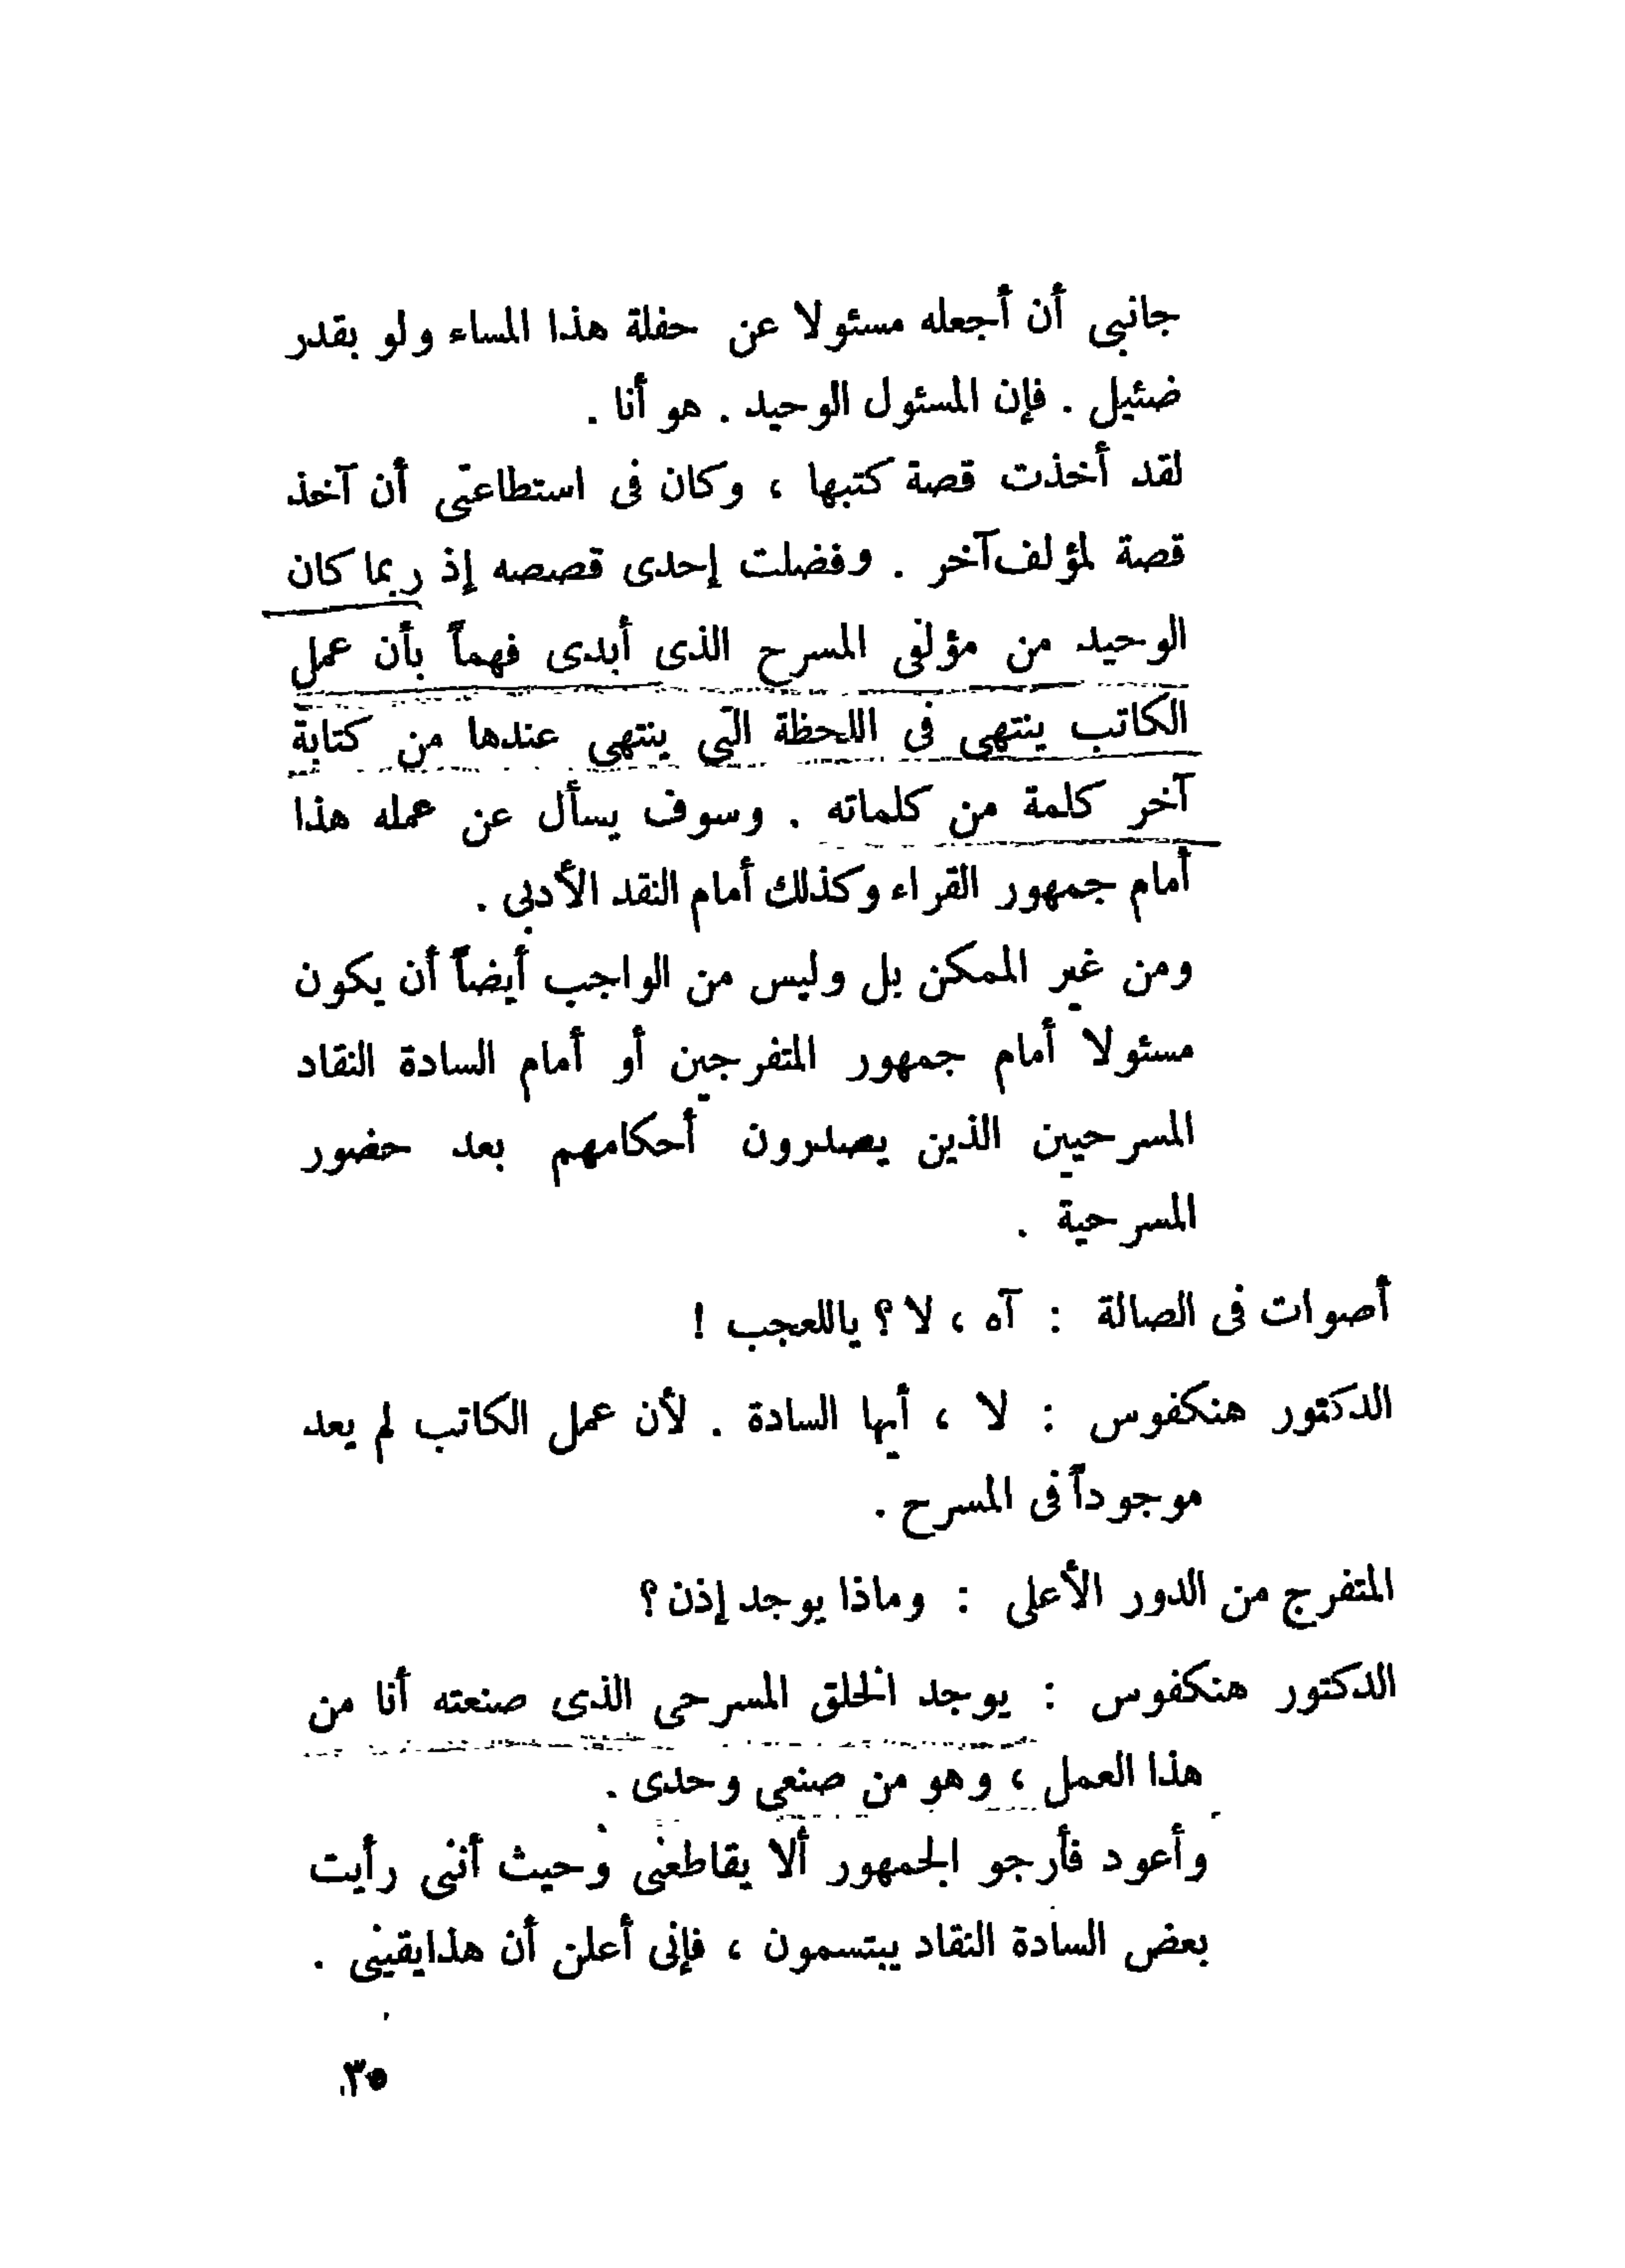 جانبى أن أجعله مسئولا عن حفلة هذا المساء ولو بقدر
ضئيل . فإن المسئول الوحيد . هو أنا .
لقد أخذت قصة كتبها ، وكان فى استطاعتى أن آخذ
قصة لمؤلف آخر . وفضلت إحدى قصصه إذ ربما كان
الوحيد من مؤلفى المسرح الذى أبدى فهماً بأن عمل
الكاتب ينتهى فى اللحظة التى ينتهى عندها من كتابة
آخر كلمة من كلماته . وسوف يسأل عن عمله هذا
أمام جمهور القراء وكذلك أمام النقد الأدبى .
ومن غير الممكن بل وليس من الواجب أيضاً أن يكون
مسئولا أمام جمهور المتفرجين أو أمام السادة النقاد
المسرحيين الذين يصدرون أحكامهم بعد حضور
المسرحية .
أصوات فى الصالة : آه ، لا ؟ ياللعجب !
الدكتور هنكفوس : لا ، أيها السادة . لأن عمل الكاتب لم يعد
موجوداً فى المسرح .
المتفرج من الدور الأعلى : وماذا يوجد إذن ؟
الدكتور هنكفوس : يوجد الخلق المسرحى الذى صنعته أنا من
هذا العمل ، وهو من صنعى وحدى .
وأعود فأرجو الجمهور ألا يقاطعنى وحيث أننى رأيت
بعض السادة النقاد يبتسمون ، فإنى أعلن أن هذا يقينى .
٣٥